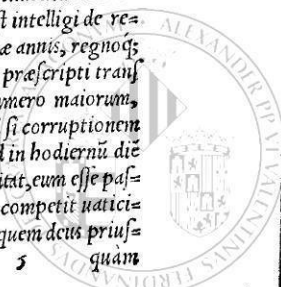 t intelligi de re=
æ annis, regnoq́;
præſcripti tranſ
mero maiorum,
ſi corruptionem
d in hodiernū diē
itat, eum eſſe paſ=
competit uatici=
quem deus priuſ=
5 quàm
ALEXANDER PP VI VALENTINUS
FERDINANDUS